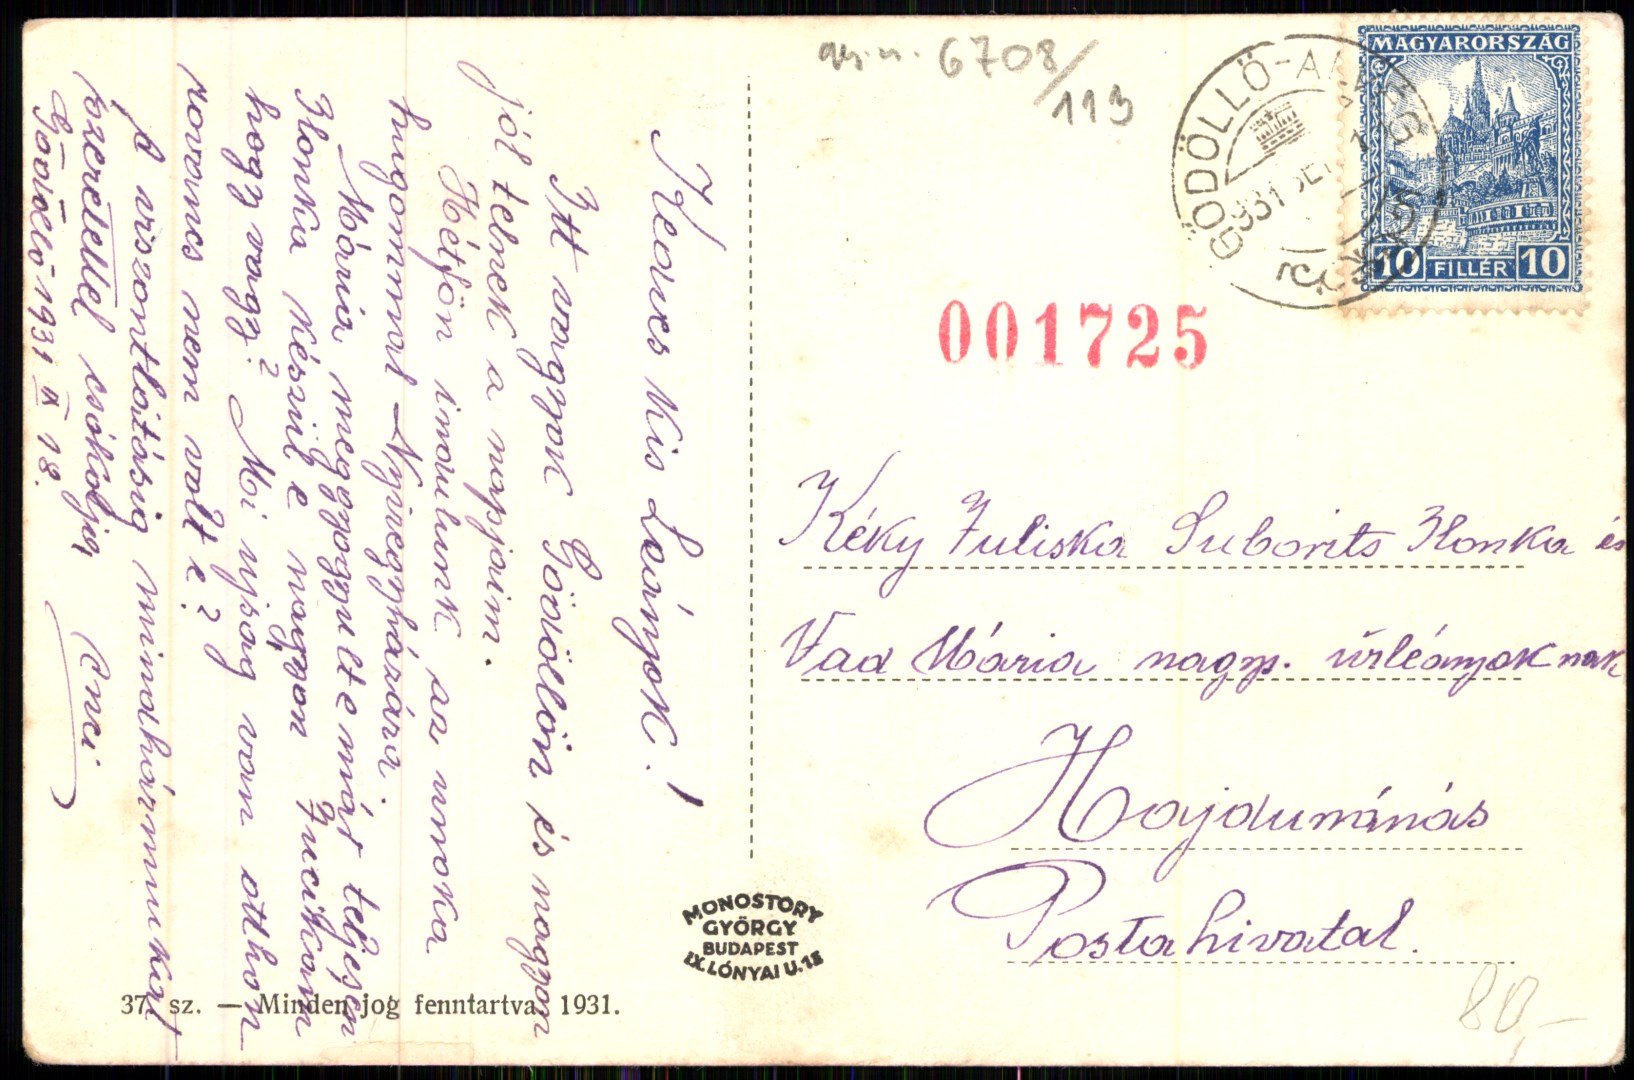 Kedves Kis Leányok!
Itt vagyok Gödöllőn és nagyon
jól telnek a napjaim.
Hétfőn indulunk az unoka
hugommal Nyiregyházára
Mária meggyógyult e már teljesen
Ilonka készül e nagyon Jucikám
hogy vagy? Mi ujság van otthon
páros nem volt e?
A viszontlátásig mindhármunkat
szeretettel csókolja
Gödöllő 1931 IX 18.
Anci
37. sz. — Minden jog fenntartva. 1931.
MONOSTORY
GYÖRGY
BUDAPEST
IX. LÓNYAI U. 18
6708/
113
GÖDÖLLŐ
931
MAGYARORSZÁG
10 FILLÉR 10
001725
Kéky Juliska Suborits Ilonka és
Vad Mária nagys. úrleányoknak
Hajdunánás
Postahivatal.
80,-